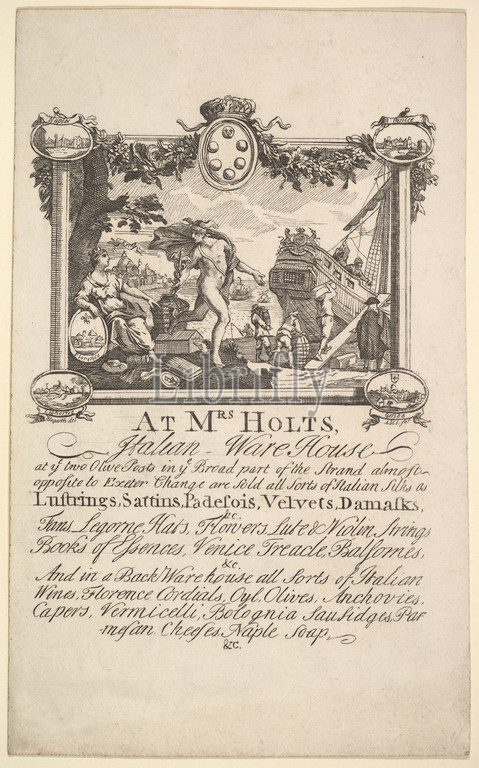 Naples
Venice
Florence
Librifly
AT MRS HOLTS,
Italian Ware House
at ye two Olive Posts in ye Broad part of the Strand almost
opposite to Exeter Change are Sold all Sorts of Italian Silks as
Lustrings, Sattins, Padesois, Velvets, Damasks,
&c.
Fans, Legorne Hats, Flowers, Lute & Violin Strings
Books of Essences, Venice Treacle, Balsomes,
&c.
And in a Back Warehouse all Sorts of Italian
Wines, Florence Cordials, Oyl, Olives, Anchovies,
Capers, Vermicelli, Bolognia Sausidges, Par=
mesan Cheeses, Naple Soap,
&c.